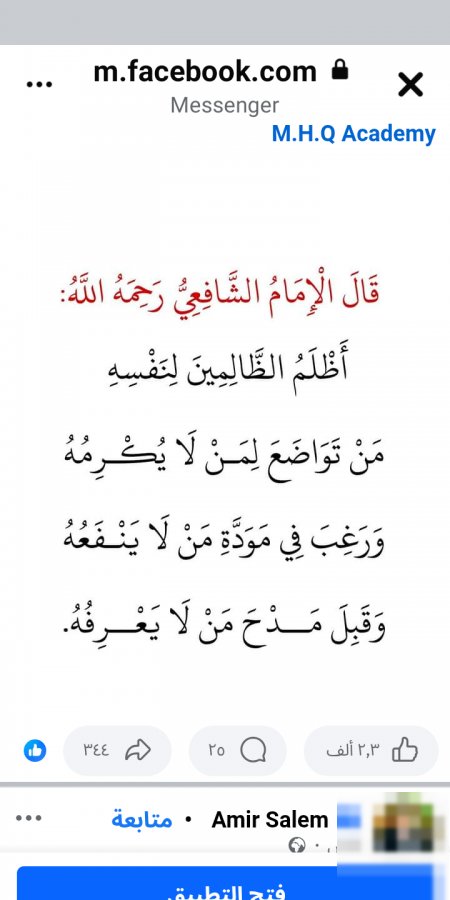 m.facebook.com
Messenger
M.H.Q Academy
قَالَ الْإِمَامُ الشَّافِعِيُّ رَحِمَهُ اللَّهُ:
أَظْلَمُ الظَّالِمِينَ لِنَفْسِهِ
مَنْ تَوَاضَعَ لِمَـنْ لَا يُكْـرِمُهُ
وَرَغِبَ فِي مَوَدَّةِ مَنْ لَا يَنْـفَعُهُ
وَقَبِلَ مَـدْحَ مَنْ لَا يَعْـرِفُهُ.
٢,٣ ألف ٢٥ ٣٤٤
Amir Salem • متابعة
فتح التطبيق